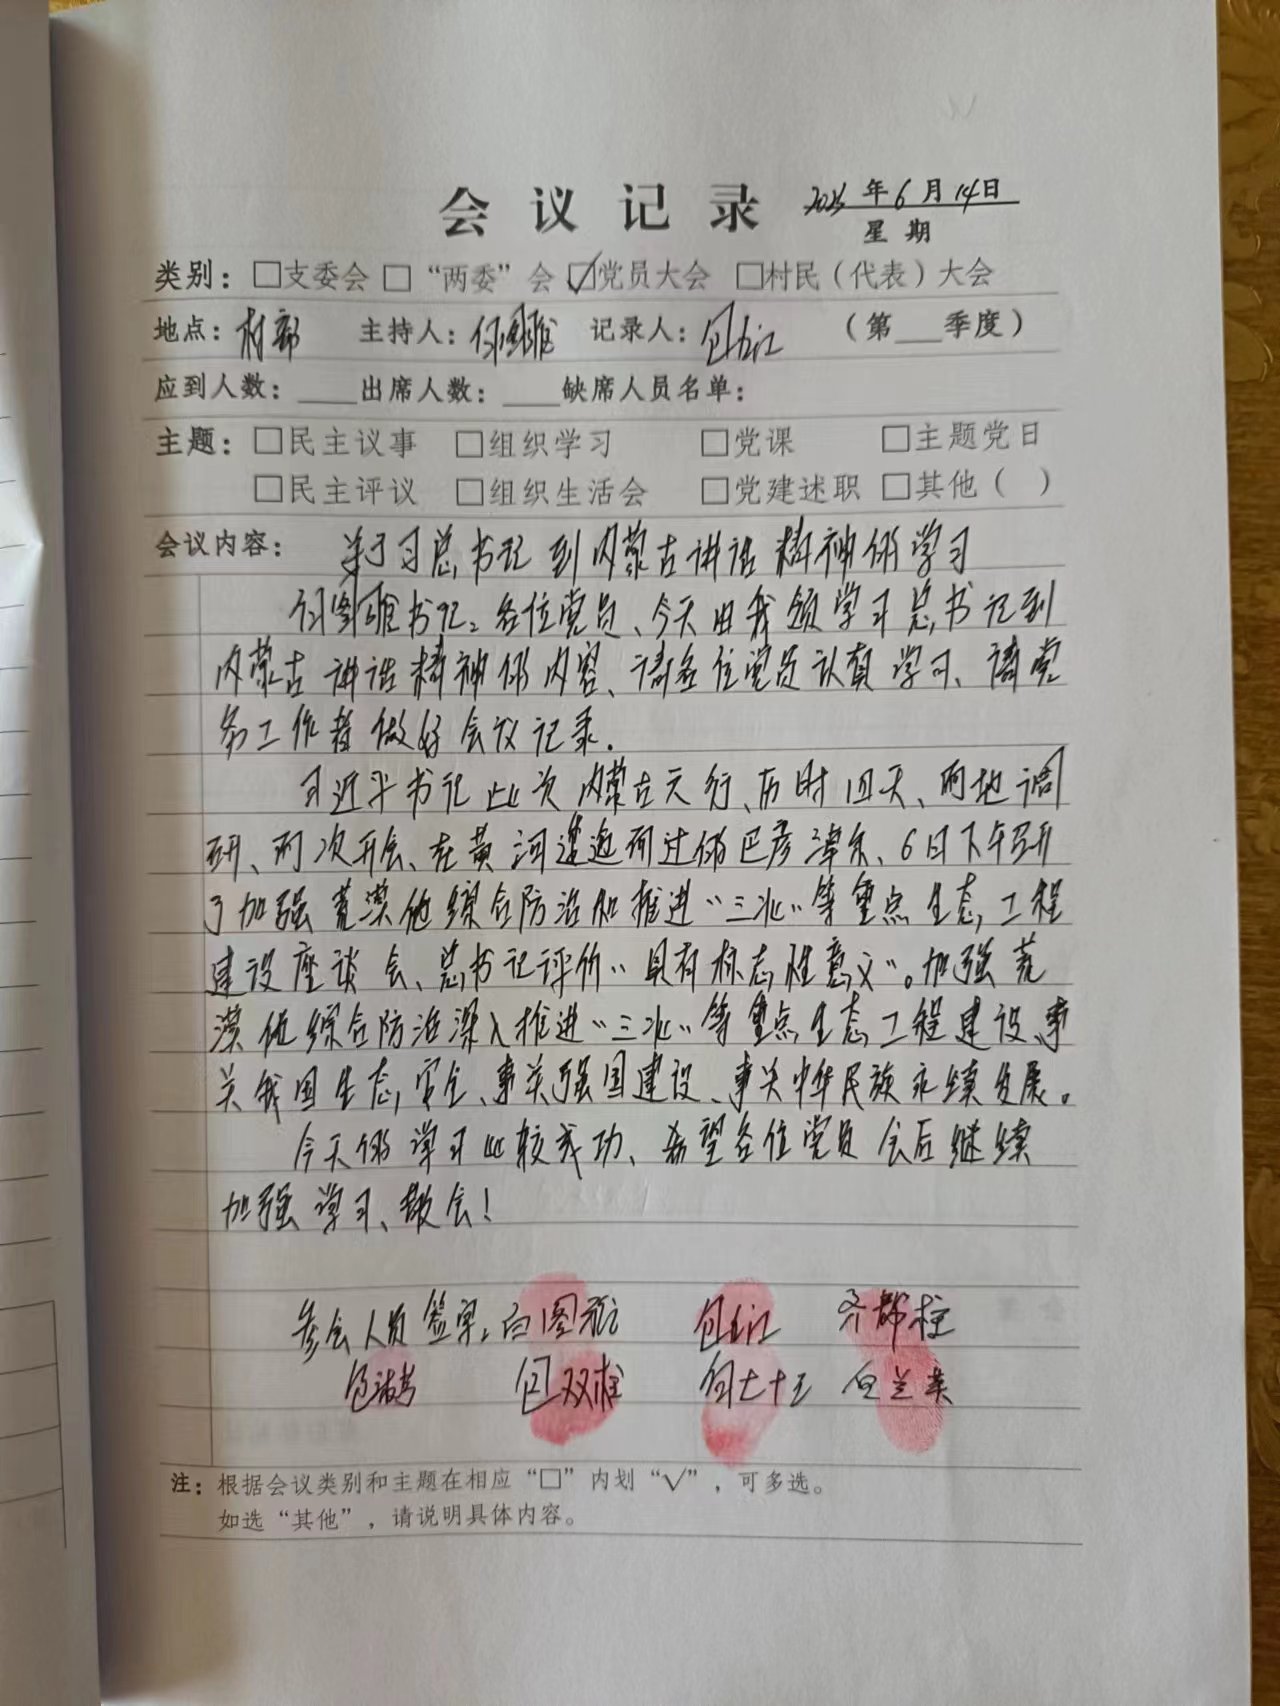 会议记录 2023年6月14日
星期
类别：□支委会 □“两委”会 ☑党员大会 □村民（代表）大会
地点：村部 主持人： 记录人： （第___季度）
应到人数：____出席人数：____缺席人员名单：
主题：□民主议事 □组织学习 □党课 □主题党日
□民主评议 □组织生活会 □党建述职 □其他（ ）
会议内容： 关于习总书记到内蒙古讲话精神的学习
书记：各位党员、今天由我领学习总书记到
内蒙古讲话精神的内容、请各位党员认真学习、请党
务工作者做好会议记录.
习近平书记此次内蒙古之行、历时四天、两地调
研、两次开会、在黄河 而过的巴彦淖尔、6日下午召开
了加强荒漠化综合防治和推进“三北”等重点生态工程
建设座谈会、总书记评价“具有标志性意义”。加强荒
漠化综合防治深入推进“三北”等重点生态工程建设、事
关我国生态安全、事关强国建设、事关中华民族永续发展。
今天的学习比较成功、希望各位党员会后继续
加强学习、散会！
参会人员签字：白图雅 齐都柱
包双柱 包七十五 白兰英
注：根据会议类别和主题在相应“□”内划“√”，可多选。
如选“其他”，请说明具体内容。